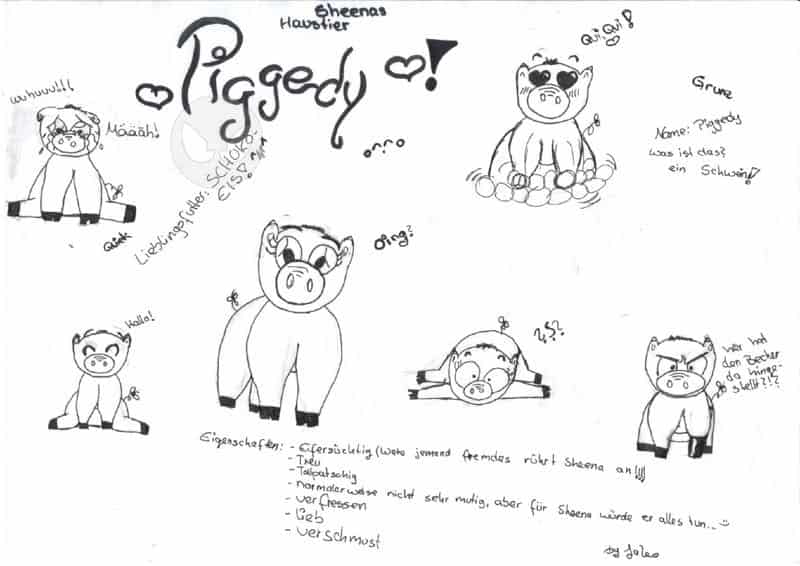 Sheenas
Haustier
Piggedy !
wuhuuu!!!
Määäh!
Quiek
Lieblingsfutter: SCHOKO-
EIS!
Qui, Qui!
Grunz
Name: Piggedy
was ist das?
ein Schwein!
Oing?
Hallo!
?,??
wer hat
den Becher
da hinge-
stellt?!?
Eigenschaften: - Eifersüchtig (Wehe jemand fremdes rührt Sheena an!!!)
- Treu
- Tolpatschig
- normalerweise nicht sehr mutig, aber für Sheena würde er alles tun...
- verfressen
- lieb
- verschmust
by